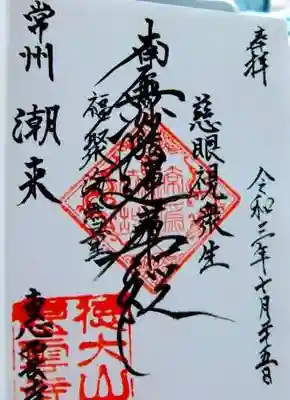 奉拝
令和 年十月廿五日
慈眼視衆生
南無妙法蓮華経
福聚海無量
常州 潮来
恵雲寺
徳大山
恵雲寺